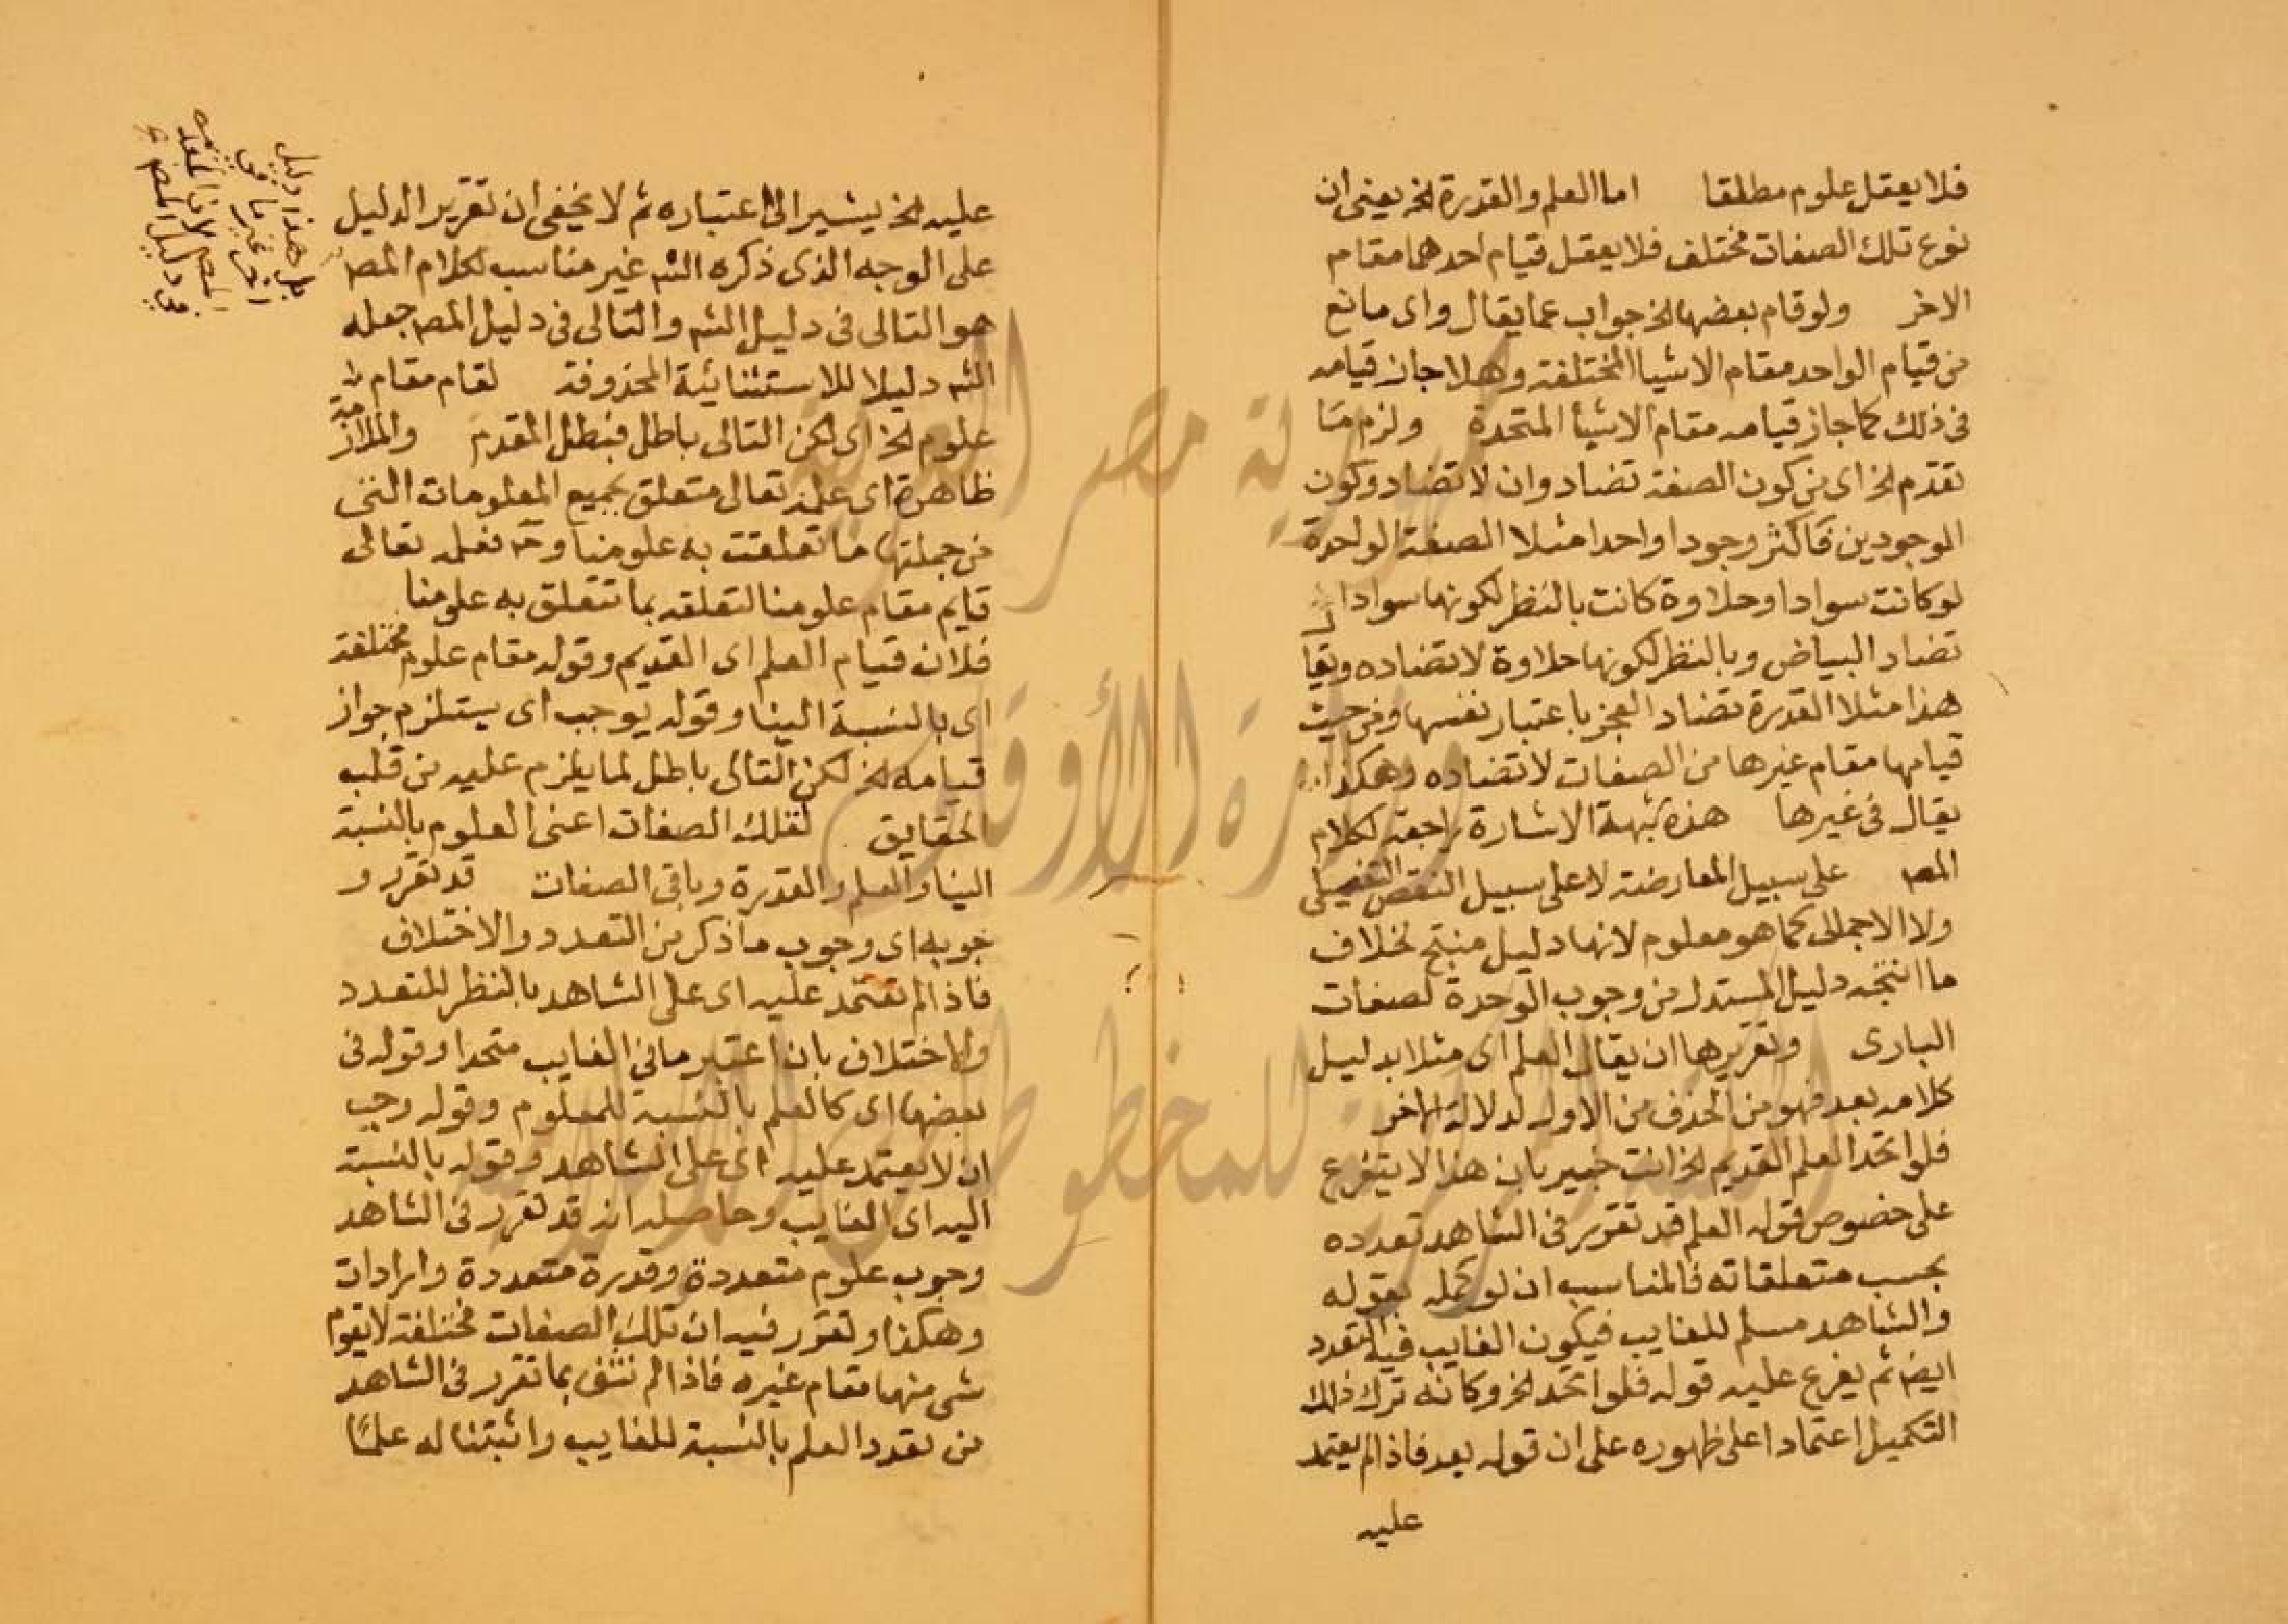 فلا يعقل علوم مطلقا اما العلم والقدرة الخ يعنى ان
نوع تلك الصفات مختلف فلا يعقل قيام احدهما مقام
الاخر ولو قام بعضها الخ جواب عما يقال واى مانع
من قيام الواحد مقام الاشيا المختلفة وهلا جاز قيامه
فى ذلك كما جاز قيامه مقام الاشيأ المتحدة ولزم متا
تقدم الخ اى من كون الصفة تضاد وان لا تضاد وكون
الموجودين فاكثر وجودا واحدا مثلا الصفة الواحدة
لو كانت سوادا وحلاوة كانت بالنظر لكونها سوادا
تضاد البياض وبالنظر لكونها حلاوة لا تضاده ويقا
هذا مثلا القدرة تضاد العجز باعتبار نفسها ومن حيث
قيامها مقام غيرها من الصفات لا تضاده وهكذا
يقال فى غيرها هذه شبهة الاشارة راجعة لكلام
المصـ على سبيل المعارضة لا على سبيل النقض التفصيلى
ولا الاجمالى كما هو معلوم لانها دليل منتج لخلاف
ما انتجه دليل المستدل من وجوب الوحدة لصفات
البارى وتقريرها ان يقال العلم اى مثلا بدليل
كلامه بعد فهو من الحذف من الاول لدلالة الاخر
فلو اتحد العلم القديم الخ انت خبير بان هذا لا يتفرع
على خصوص قوله العلم قد تقرر فى الشاهد تعدده
بحسب متعلقاته فالمناسب ان لو كمله بقوله
والشاهد مسلم للغايب فيكون الغايب فيه التعدد
ايضا ثم يفرع عليه قوله فلو اتحد الخ وكانه ترك ذلك
التكميل اعتمادا على ظهوره على ان قوله بعد فاذا لم يعتمد
عليه
عليه الخ يشير الى اعتباره ثم لا يخفى ان تقرير الدليل
على الوجه الذى ذكره الشـ غير مناسب لكلام المصـ
هو التالى فى دليل الشـ والتالى فى دليل المصـ جعله
الشـ دليلا للاستثنائية المحذوفة لقام مقام
علوم الخ اى لكن التالى باطل فبطل المقدم والملازمة
ظاهرة اى علمه تعالى متعلق بجميع المعلومات التى
من جملتها ما تعلقت به علومنا وح فعلمه تعالى
قايم مقام علومنا لتعلقه بما تتعلق به علومنا
فلان قيام العلم اى القديم وقوله مقام علوم مختلفة
اى بالنسبة الينا وقوله يوجب اى يستلزم جواز
قيامه الخ لكن التالى باطل لما يلزم عليه من قلب
الحقايق لتلك الصفات اعنى العلوم بالنسبة
الينا والعلم والقدرة وباقى الصفات قد تقرر و
جوبه اى وجوب ما ذكر من التعدد والاختلاف
فاذا لم تعتمد عليه اى على الشاهد بالنظر للتعدد
والاختلاف بان اعتبر ما فى الغايب متحدا وقوله فى
بعضها اى كالعلم بالنسبة للمعلوم وقوله وجب
ان لا يعتمد عليه اى على الشاهد وقوله بالنسبة
اليه اى الغايب وحاصله انه قد تقرر فى الشاهد
وجوب علوم متعددة وقدرة متعددة وارادات
وهكذا وتقرر فيه ان تلك الصفات مختلفة لا يقوم
شى منها مقام غيره فاذا لم نثق بما تقرر فى الشاهد
من تعدد العلم بالنسبة للغايب واثبتنا له علمًا
جمهورية مصر العربية
وزارة الأوقاف